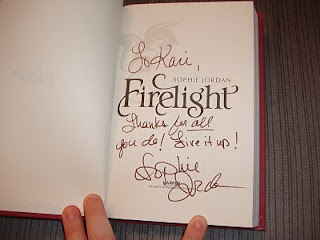 To Kari,
SOPHIE JORDAN
Firelight
Thanks for all
you do! Live it up!
Sophie
Jordan